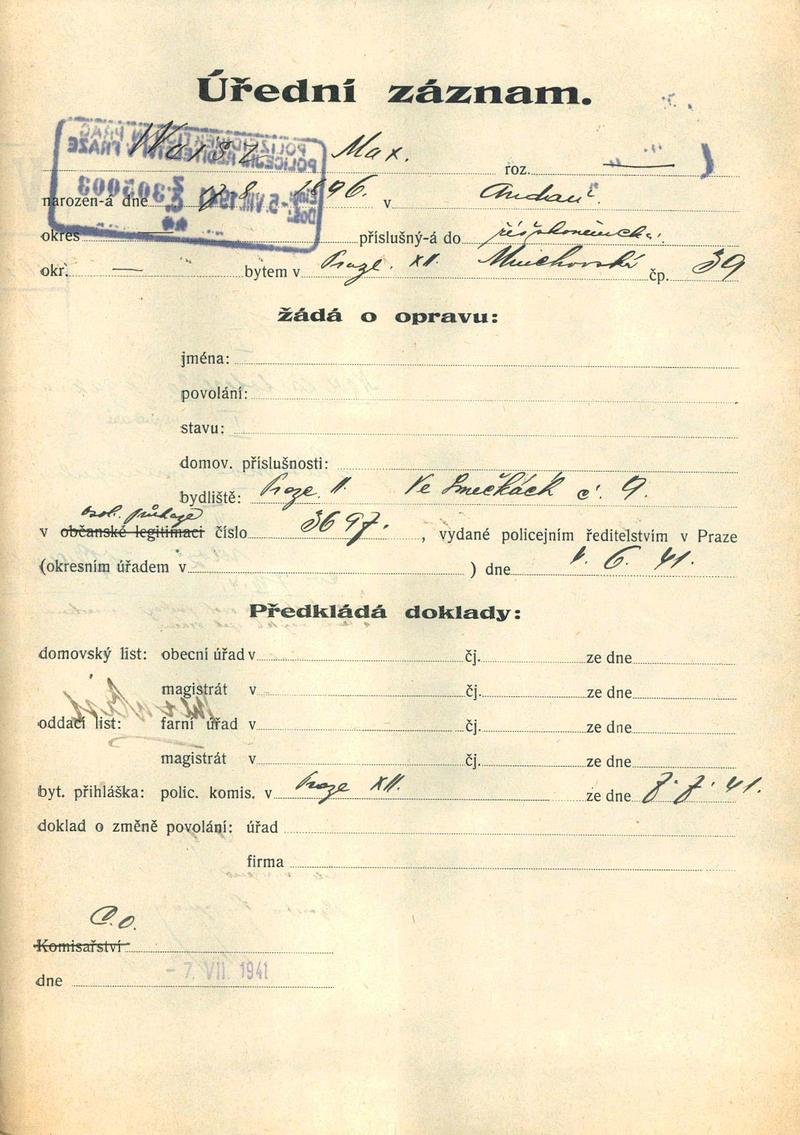 Úřední záznam.
Weisz Max. roz. —
narozen-á dne 17.8. 1896. v Andau
okres — příslušný-á do
okr. — bytem v Praze XII. čp. 39
žádá o opravu:
jména:
povolání:
stavu:
domov. příslušnosti:
bydliště: Praze II. Ve Smečkách č. 9.
osob. průkaze
v občanské legitimaci číslo 3697. , vydané policejním ředitelstvím v Praze
(okresním úřadem v ) dne 6. 41.
Předkládá doklady:
domovský list: obecní úřad v čj. ze dne
magistrát v čj. ze dne
oddací list: farní úřad v čj. ze dne
magistrát v čj. ze dne
byt. přihláška: polic. komis. v Praze XII. ze dne 7. 7. 41.
doklad o změně povolání: úřad
firma
C.O.
Komisařství
dne - 7. VII. 1941